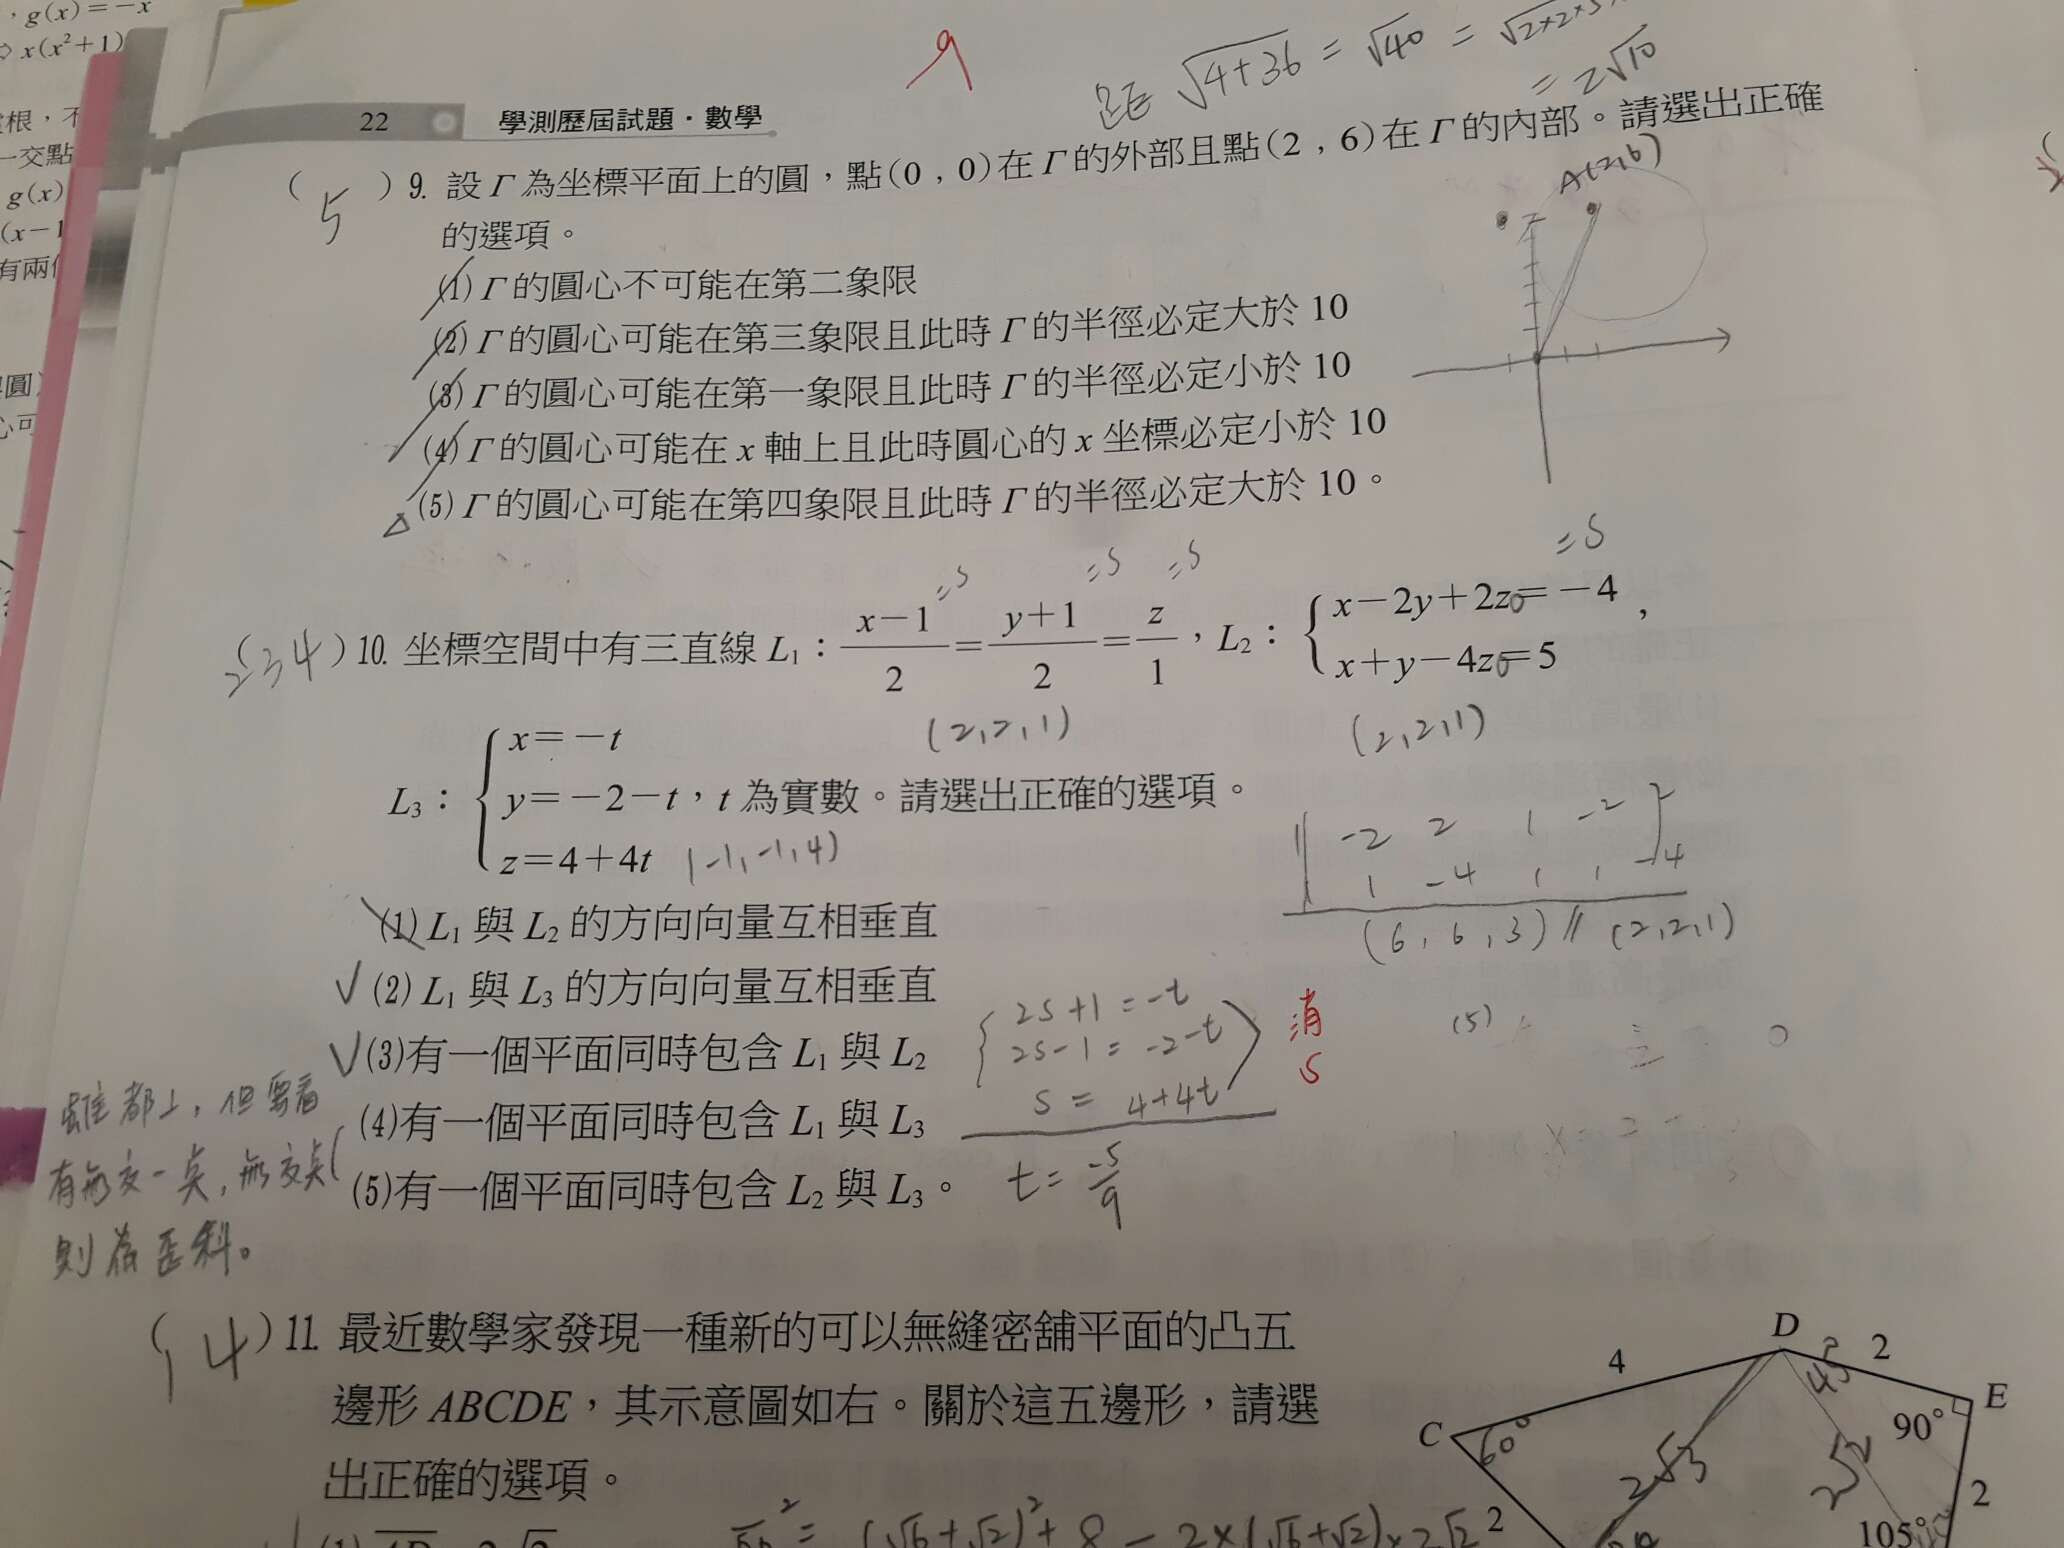 ，g(x)＝−x
⇨ x(x²+1)
根，不
一交點
g(x)
(x−1
有兩個
圓
心可
9
距 √4+36 = √40 = √2×2×5×
= 2√10
22 學測歷屆試題・數學
( 5 ) 9. 設 Γ 為坐標平面上的圓，點(0 , 0)在 Γ 的外部且點(2 , 6)在 Γ 的內部。請選出正確
的選項。
A(2,6)
(1) Γ 的圓心不可能在第二象限
(2) Γ 的圓心可能在第三象限且此時 Γ 的半徑必定大於 10
(3) Γ 的圓心可能在第一象限且此時 Γ 的半徑必定小於 10
(4) Γ 的圓心可能在 x 軸上且此時圓心的 x 坐標必定小於 10
△ (5) Γ 的圓心可能在第四象限且此時 Γ 的半徑必定大於 10。
=S =S =S =S
(234) 10. 坐標空間中有三直線 L₁：(x−1)/2＝(y+1)/2＝z/1，L₂：{x−2y+2z＝−4，
x+y−4z＝5
(2,2,1) (2,2,1)
L₃：{x＝−t
y＝−2−t，t 為實數。請選出正確的選項。
z＝4+4t (-1,-1,4)
-2 2 1 -2
1 -4 1 1 -4
(6,6,3) // (2,2,1)
(1) L₁ 與 L₂ 的方向向量互相垂直
✓ (2) L₁ 與 L₃ 的方向向量互相垂直
✓ (3)有一個平面同時包含 L₁ 與 L₂
(4)有一個平面同時包含 L₁ 與 L₃
(5)有一個平面同時包含 L₂ 與 L₃。
2S+1=-t
2S-1=-2-t
S= 4+4t
t= -5/9
消
S
(5)
雖都⊥, 但要看
有無交一點, 無交點
則為歪斜。
(14) 11. 最近數學家發現一種新的可以無縫密舖平面的凸五
邊形 ABCDE，其示意圖如右。關於這五邊形，請選
出正確的選項。
D
4
2
45°
E
90°
C
60°
2√3
2√2
2
2
105°
² = (√6+√2)² + 8 − 2×(√6+√2)×2√2